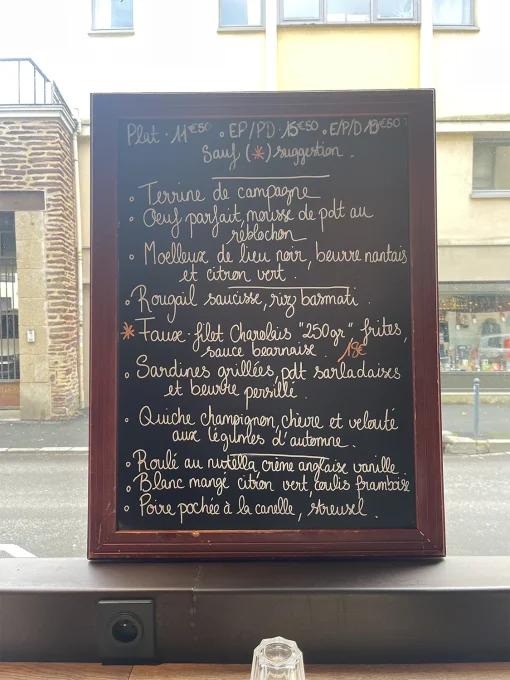 Plat · 11€50 · EP/PD · 15€50 · E/P/D 18€50
Sauf (*) suggestion.
◦ Terrine de campagne
◦ Oeuf parfait, mousse de pdt au
reblochon
◦ Moelleux de lieu noir, beurre nantais
et citron vert.
◦ Rougail saucisse, riz basmati.
* Faux-filet Charolais "250gr" frites,
sauce bearnaise. 18€
◦ Sardines grillées, pdt sarladaises
et beurre persillé.
◦ Quiche champignon, chèvre et velouté
aux légumes d'automne.
◦ Roulé au nutella, crème anglaise vanille.
◦ Blanc mangé citron vert, coulis framboise
◦ Poire pochée à la canelle, streusel.